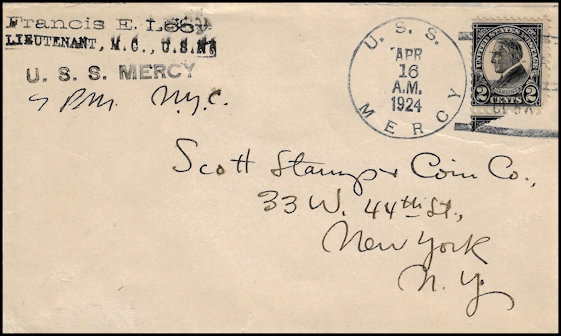 Francis E. Locy
LIEUTENANT, M.C., U.S.N.
U. S. S. MERCY
7 P.M. N.Y.C.
U. S. S.
APR
16
A.M.
1924
MERCY
UNITED STATES POSTAGE
2 CENTS 2
Scott Stamp & Coin Co.,
33 W. 44th St.,
New York
N.Y.